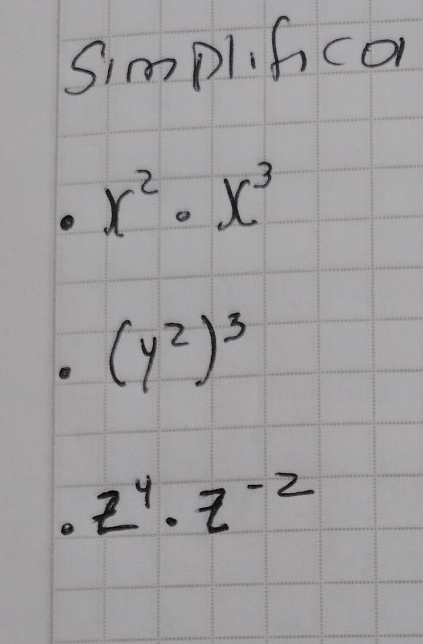 Simplifica
• x² · x³
• (y²)³
• z⁴ · z⁻²